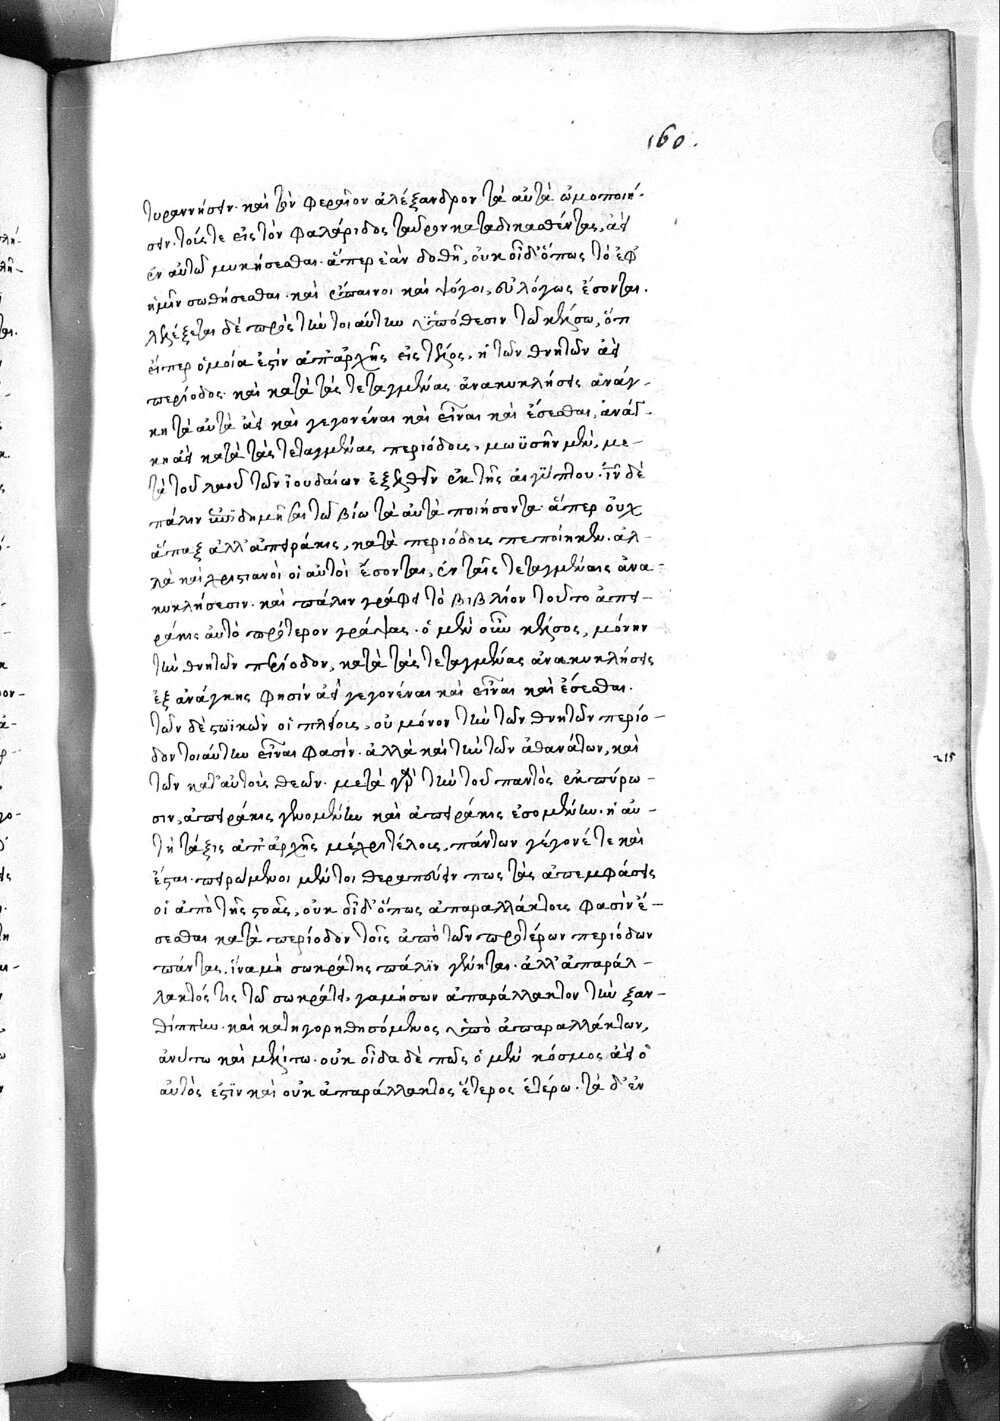 160.
τυραννήσειν· καὶ τὸν φεραῖον ἀλέξανδρον τὰ αὐτὰ ὠμοποιή-
σειν· τούς τε εἰς τὸν φαλάριδος ταῦρον καταδικασθέντας, ἀεὶ
ἐν αὐτῷ μυκήσεσθαι· ἅπερ ἐὰν δοθῇ, οὐκ οἶδ' ὅπως τὸ ἐφ'
ἡμῖν σωθήσεται· καὶ ἔπαινοι καὶ ψόγοι, εὐλόγως ἔσονται.
λελέξεται δὲ πρὸς τὴν τοιαύτην ὑπόθεσιν τῷ κέλσῳ, ὅτι
εἴπερ ὁμοία ἐστὶν ἀπ' ἀρχῆς εἰς τέλος, ἡ τῶν θνητῶν ἀεὶ
περίοδος· καὶ κατὰ τὰς τεταγμένας ἀνακυκλήσεις ἀνάγ-
κη τὰ αὐτὰ ἀεὶ καὶ γεγονέναι καὶ εἶναι καὶ ἔσεσθαι, ἀνάγ-
κη ἀεὶ κατὰ τὰς τεταγμένας περιόδους, μωϋσῆν μὲν, με-
τὰ τοῦ λαοῦ τῶν ἰουδαίων ἐξελθεῖν ἐκ τῆς αἰγύπτου· ἰῦν δὲ
πάλιν ἐπιδημῆσαι τῷ βίῳ τὰ αὐτὰ ποιήσοντα· ἅπερ οὐχ
ἅπαξ ἀλλ' ἀπειράκις, κατὰ περιόδους πεποίηκεν. ἀλ-
λὰ καὶ χριστιανοὶ οἱ αὐτοὶ ἔσονται, ἐν ταῖς τεταγμέναις ἀνα-
κυκλήσεσιν· καὶ πάλιν γράψει τὸ βιβλίον τοῦτο ἀπει-
ράκις αὐτὸ πρότερον γράψας. ὁ μὲν οὖν κέλσος, μόνην
τὴν θνητῶν περίοδον, κατὰ τὰς τεταγμένας ἀνακυκλήσεις
ἐξ ἀνάγκης φησὶν ἀεὶ γεγονέναι καὶ εἶναι καὶ ἔσεσθαι.
τῶν δὲ στωϊκῶν οἱ πλείους, οὐ μόνον τὴν τῶν θνητῶν περίο-
δον τοιαύτην εἶναι φασίν· ἀλλὰ καὶ τὴν τῶν ἀθανάτων, καὶ
τῶν κατ' αὐτοὺς θεῶν. μετὰ γὰρ τὴν τοῦ παντὸς ἐκπύρω-
σιν, ἀπειράκις γενομένην καὶ ἀπειράκις ἐσομένην· ἡ αὐ-
τὴ τάξις ἀπ' ἀρχῆς μέχρι τέλους, πάντων γέγονέ τε καὶ
ἔσται. πειρώμενοι μέντοι θεραπεύειν πως τὰς ἀπεμφάσεις
οἱ ἀπὸ τῆς στοᾶς, οὐκ οἶδ' ὅπως ἀπαραλλάκτους φασὶν ἔ-
σεσθαι κατὰ περίοδον τοῖς ἀπὸ τῶν προτέρων περιόδων
πάντας. ἵνα μὴ σωκράτης πάλιν γένηται· ἀλλ' ἀπαράλ-
λακτός τις τῷ σωκράτει, γαμήσων ἀπαράλλακτον τὴν ξαν-
θίππην· καὶ κατηγορηθησόμενος ὑπὸ ἀπαραλλάκτων,
ἀνύτῳ καὶ μελίτῳ. οὐκ οἶδα δὲ πῶς ὁ μὲν κόσμος ἀεὶ ὁ
αὐτός ἐστιν καὶ οὐκ ἀπαράλλακτος ἕτερος ἑτέρῳ. τὰ δ' ἐν